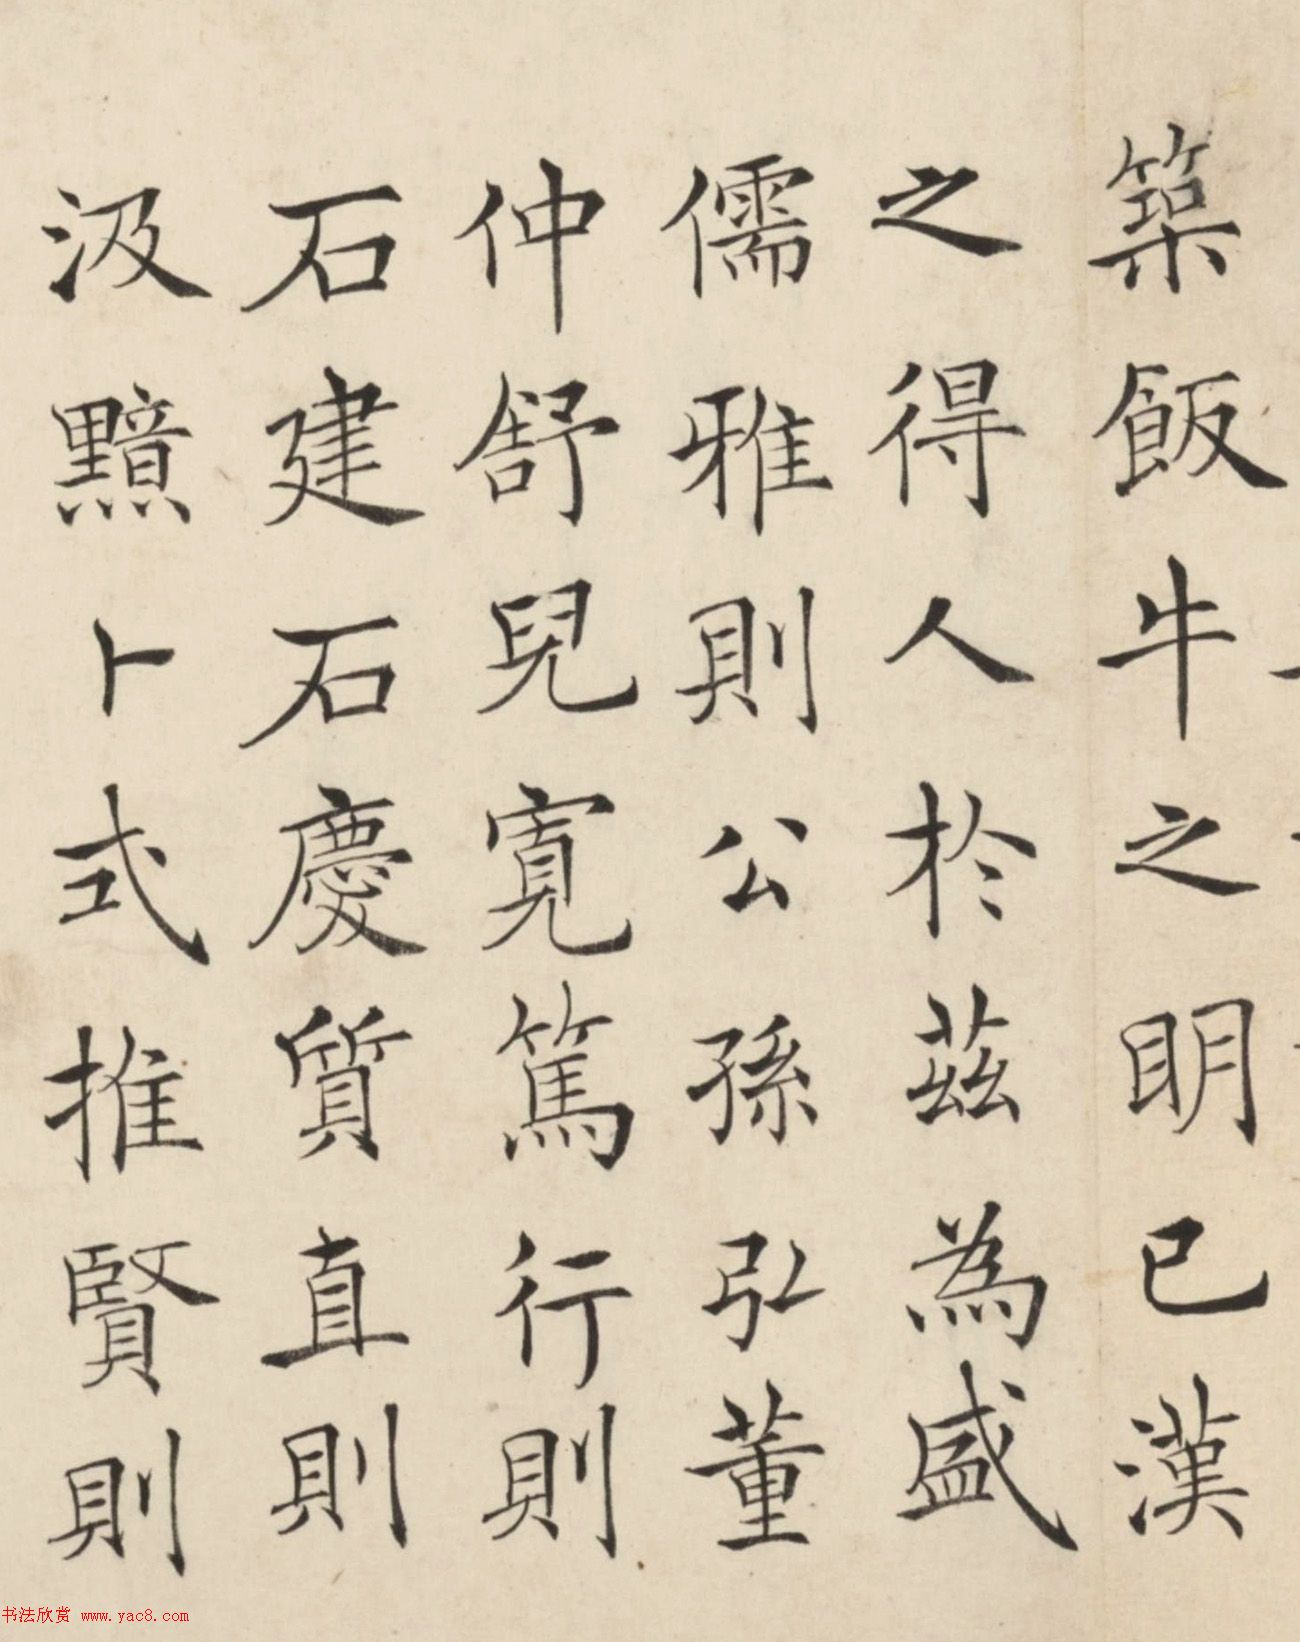 築飯牛之明已漢
之得人於茲為盛
儒雅則公孫弘董
仲舒兒寬篤行則
石建石慶質直則
汲黯卜式推賢則
书法欣赏 www.yac8.com